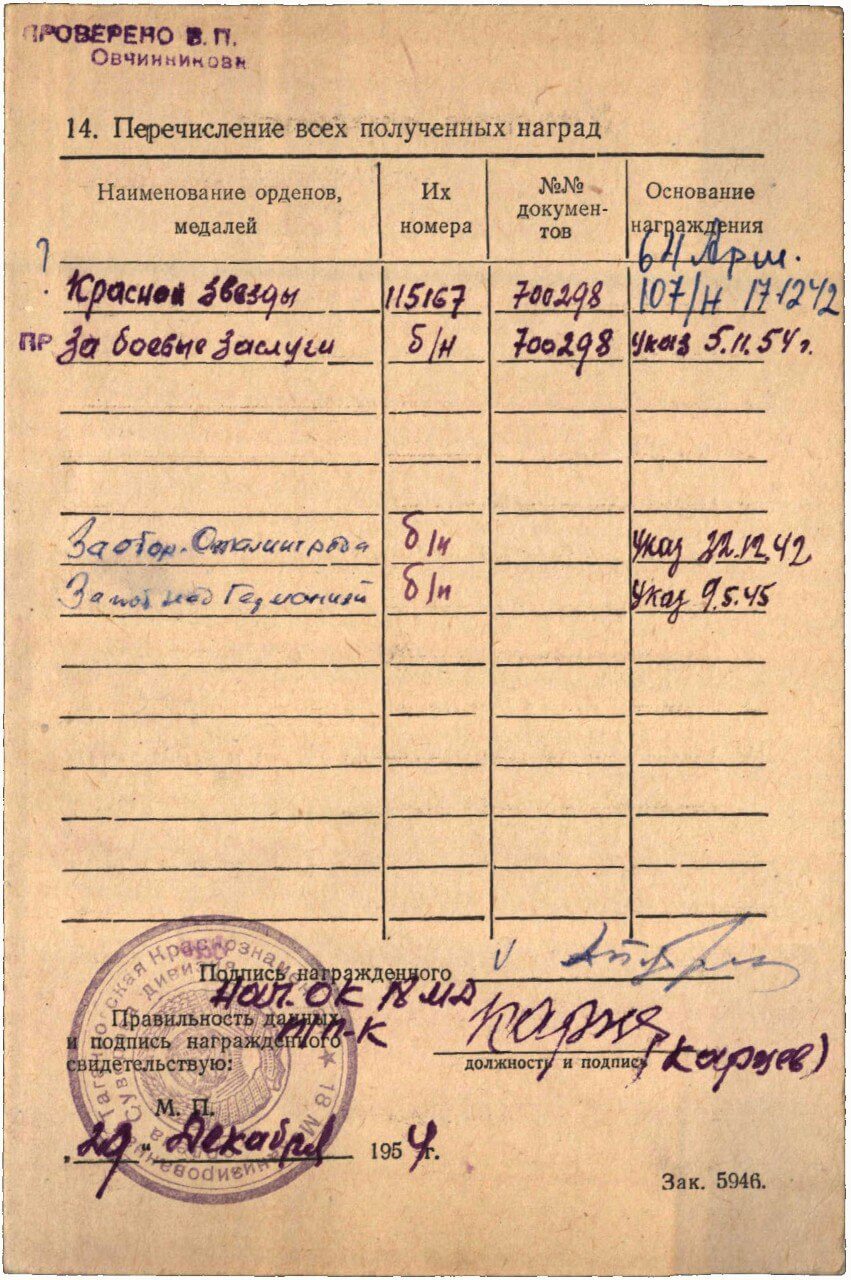 ПРОВЕРЕНО В. П.
ОВЧИННИКОВА
14. Перечисление всех полученных наград
Наименование орденов, медалей
Их номера
№№ докумен-тов
Основание награждения
64 Арм.
? Красной звезды 115167 700298 107/н 17-12 42
ПР За боевые заслуги б/н 700298 Указ 5.11.54 г.
За обор. Сталинграда б/н Указ 22.12.42
За поб над Германией б/н Указ 9.5.45
Подпись награжденного
Нач. ОК 18 МД
Правильность данных
и подпись награжденного
свидетельствую:
п/п-к
должность и подпись
(Карцев)
М. П.
„29" Декабря 1954 г.
Зак. 5946.